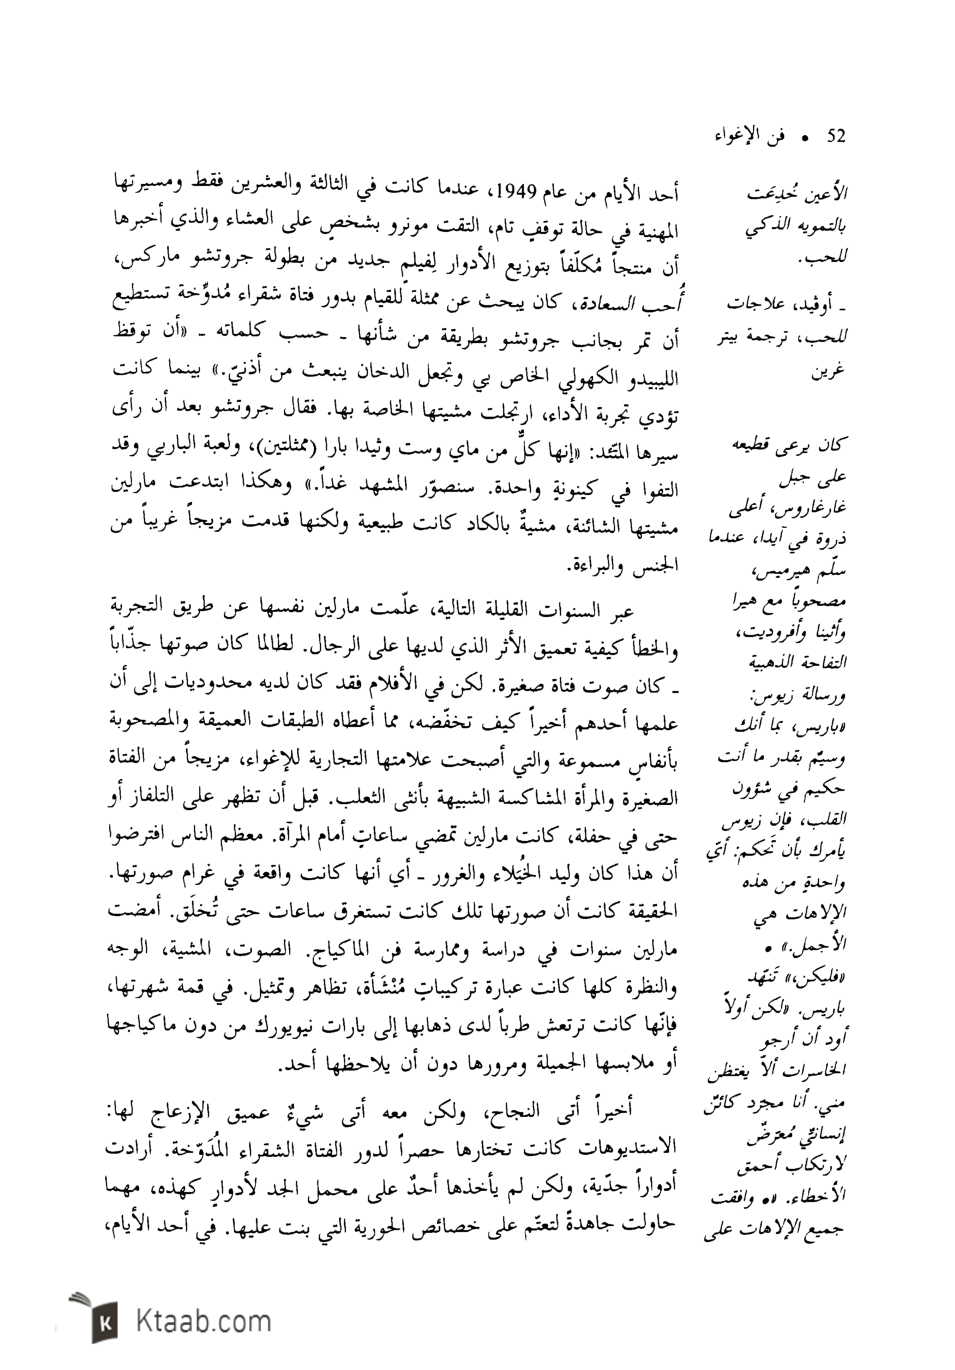 52 • فن الإغواء
أحد الأيام من عام 1949، عندما كانت في الثالثة والعشرين فقط ومسيرتها
المهنية في حالة توقفٍ تام، التقت مونرو بشخصٍ على العشاء والذي أخبرها
أن منتجاً مُكلّفاً بتوزيع الأدوار لفيلمٍ جديد من بطولة جروتشو ماركس،
أُحب السعادة، كان يبحث عن ممثلة للقيام بدور فتاة شقراء مُدوِّخة تستطيع
أن تمر بجانب جروتشو بطريقة من شأنها ـ حسب كلماته ـ «أن توقظ
الليبيدو الكهولي الخاص بي وتجعل الدخان ينبعث من أذنيّ.» بينما كانت
تؤدي تجربة الأداء، ارتجلت مشيتها الخاصة بها. فقال جروتشو بعد أن رأى
سيرها المتّئد: «إنها كلٌّ من ماي وست وثيدا بارا (ممثلتين)، ولعبة الباربي وقد
التفوا في كينونةٍ واحدة. سنصوّر المشهد غداً.» وهكذا ابتدعت مارلين
مشيتها الشائنة، مشيةٌ بالكاد كانت طبيعية ولكنها قدمت مزيجاً غريباً من
الجنس والبراءة.
عبر السنوات القليلة التالية، علّمت مارلين نفسها عن طريق التجربة
والخطأ كيفية تعميق الأثر الذي لديها على الرجال. لطالما كان صوتها جذّاباً
ـ كان صوت فتاة صغيرة. لكن في الأفلام فقد كان لديه محدوديات إلى أن
علمها أحدهم أخيراً كيف تخفّضه، مما أعطاه الطبقات العميقة والمصحوبة
بأنفاسٍ مسموعة والتي أصبحت علامتها التجارية للإغواء، مزيجاً من الفتاة
الصغيرة والمرأة المشاكسة الشبيهة بأنثى الثعلب. قبل أن تظهر على التلفاز أو
حتى في حفلة، كانت مارلين تمضي ساعاتٍ أمام المرآة. معظم الناس افترضوا
أن هذا كان وليد الخُيَلاء والغرور ـ أي أنها كانت واقعة في غرام صورتها.
الحقيقة كانت أن صورتها تلك كانت تستغرق ساعات حتى تُخلَق. أمضت
مارلين سنوات في دراسة وممارسة فن الماكياج. الصوت، المشية، الوجه
والنظرة كلها كانت عبارة تركيباتٍ مُنْشَأة، تظاهر وتمثيل. في قمة شهرتها،
فإنّها كانت ترتعش طرباً لدى ذهابها إلى بارات نيويورك من دون ماكياجها
أو ملابسها الجميلة ومرورها دون أن يلاحظها أحد.
أخيراً أتى النجاح، ولكن معه أتى شيءٌ عميق الإزعاج لها:
الاستديوهات كانت تختارها حصراً لدور الفتاة الشقراء المُدَوّخة. أرادت
أدواراً جدّية، ولكن لم يأخذها أحدٌ على محمل الجد لأدوارٍ كهذه، مهما
حاولت جاهدةً لتعتّم على خصائص الحورية التي بنت عليها. في أحد الأيام،
الأعين خُدِعَت
بالتمويه الذكي
للحب.
ـ أوڤيد، علاجات
للحب، ترجمة بيتر
غرين
كان يرعى قطيعه
على جبل
غارغاروس، أعلى
ذروة في آيدا، عندما
سلّم هيرميس،
مصحوباً مع هيرا
وأثينا وأفروديت،
التفاحة الذهبية
ورسالة زيوس:
«باريس، بما أنك
وسيمٌ بقدر ما أنت
حكيم في شؤون
القلب، فإن زيوس
يأمرك بأن تَحكم: أيّ
واحدةٍ من هذه
الإلاهات هي
الأجمل.» •
«فليكن،» تَنهّد
باريس. «لكن أولاً
أود أن أرجو
الخاسرات ألاّ يغتظن
مني. أنا مجرّد كائنٌ
إنسانيٌّ مُعرّضٌ
لارتكاب أحمق
الأخطاء. »• وافقت
جميع الإلاهات على
K Ktaab.com